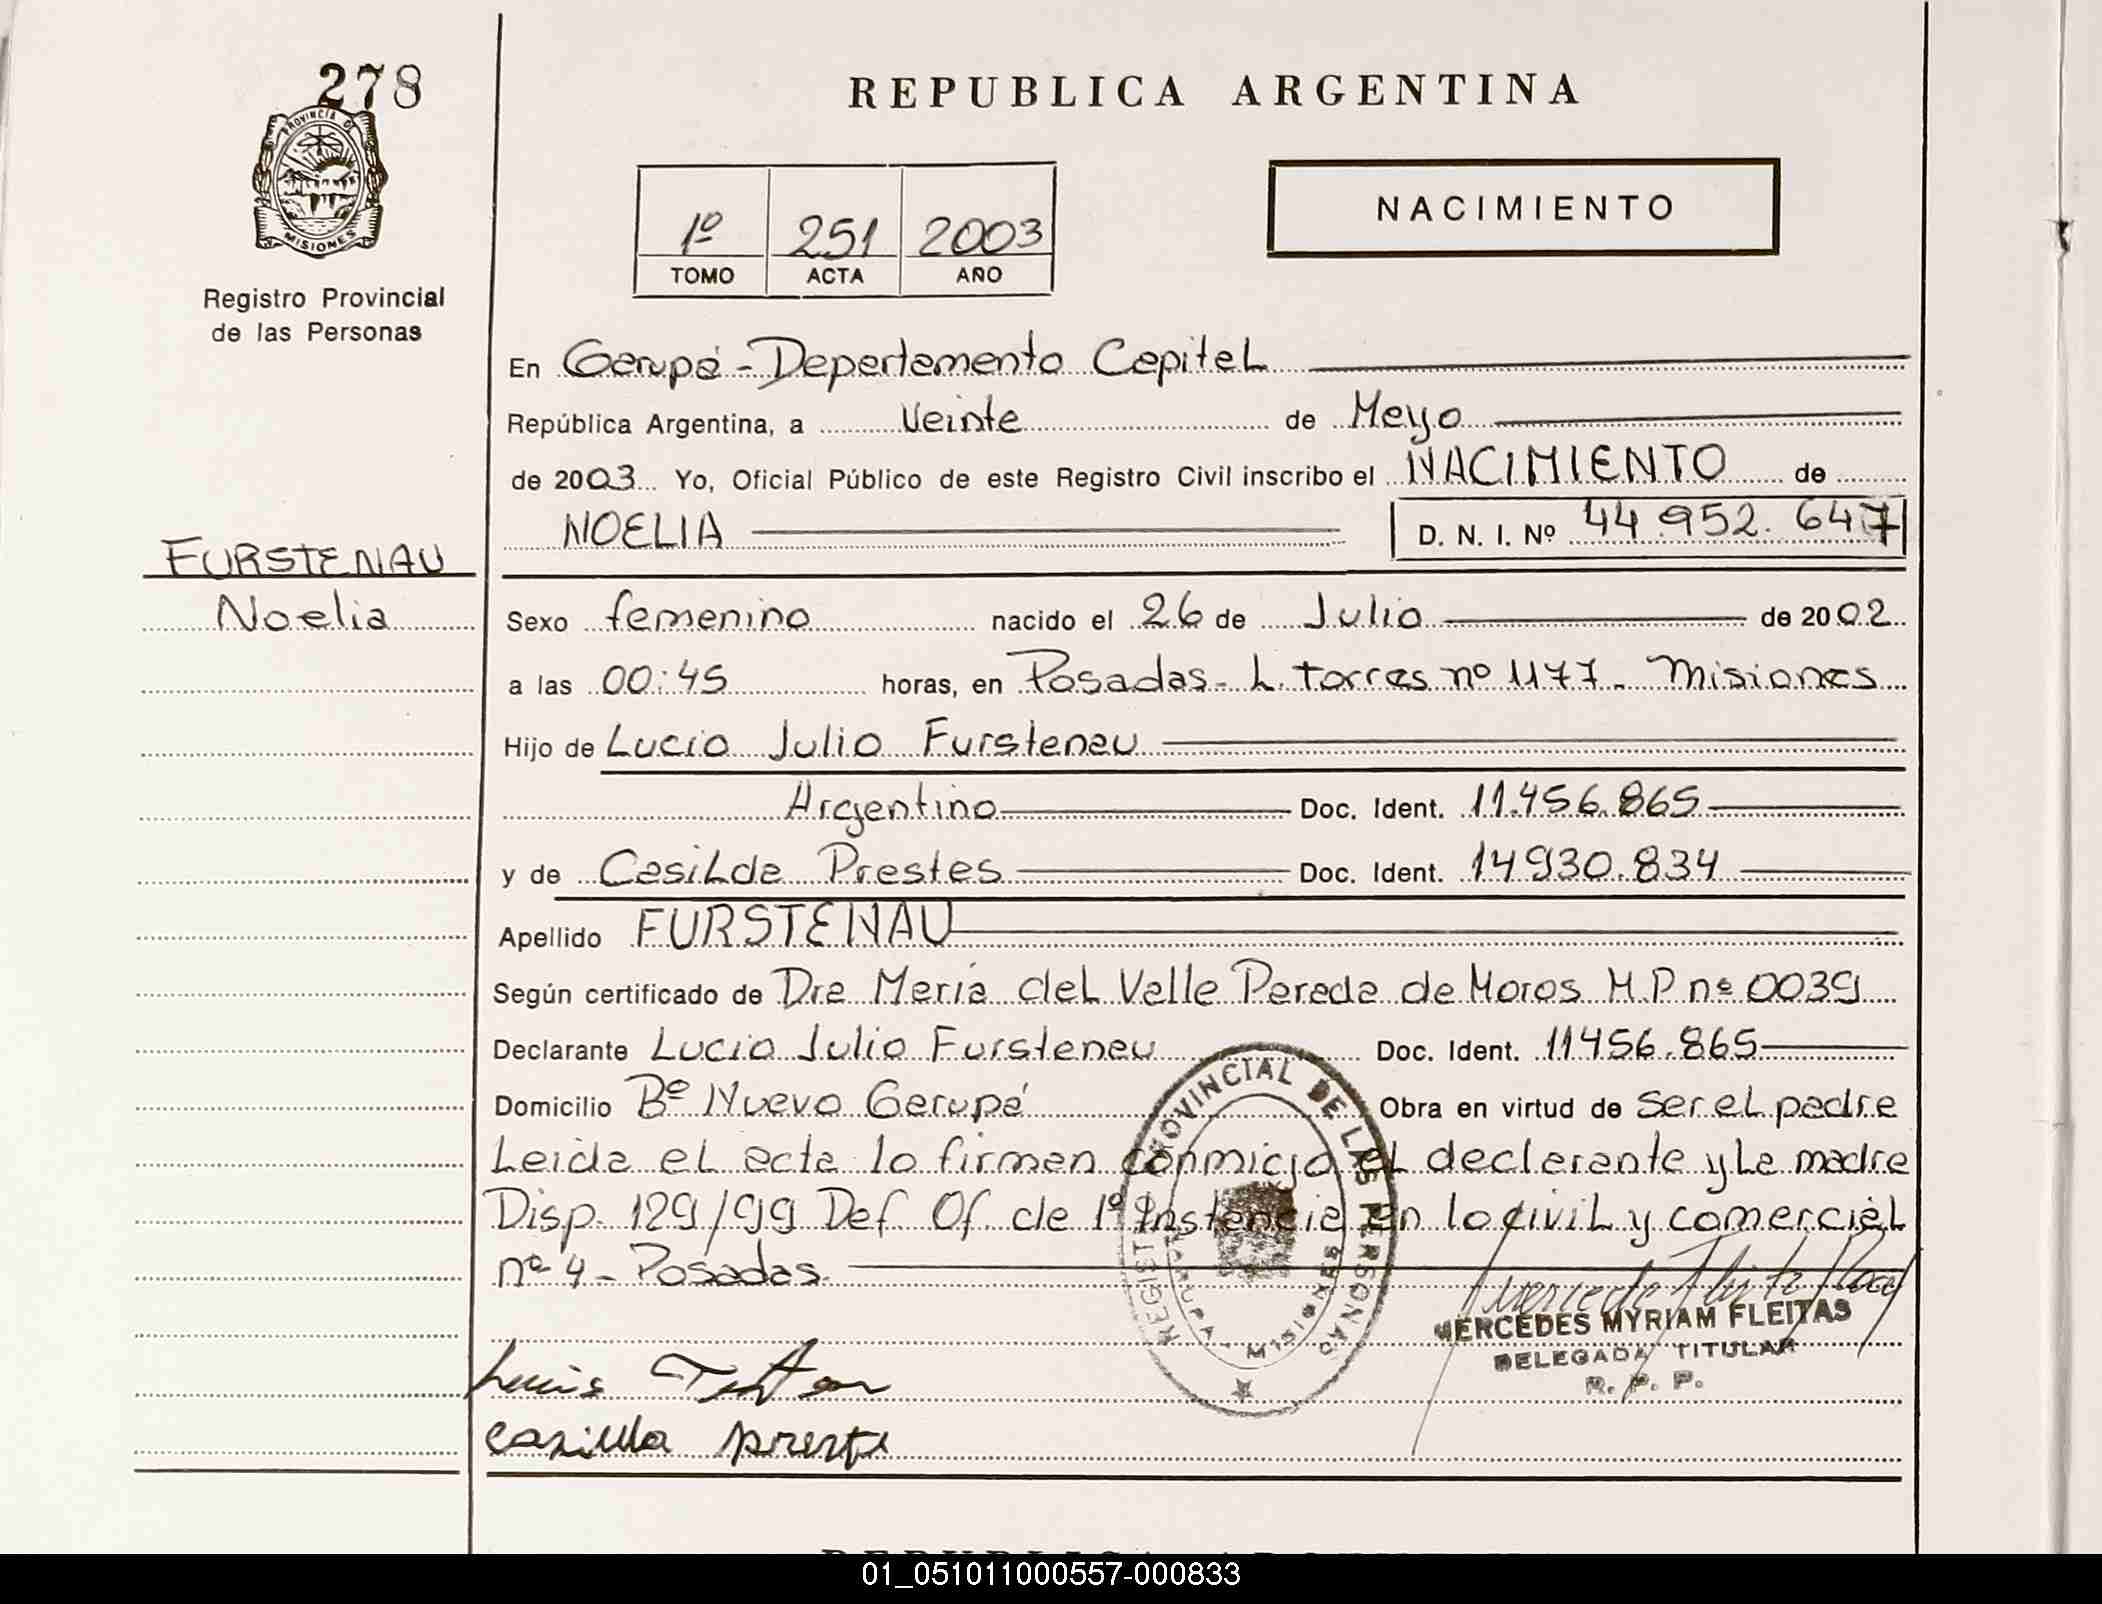 278
REPUBLICA ARGENTINA
PROVINCIA DE MISIONES
Registro Provincial
de las Personas
1º 251 2003
TOMO ACTA AÑO
NACIMIENTO
En Garupá - Departamento Capital
República Argentina, a Veinte de Mayo
de 2003 Yo, Oficial Público de este Registro Civil inscribo el NACIMIENTO de
NOELIA D. N. I. Nº 44.952.647
FURSTENAU
Noelia
Sexo femenino nacido el 26 de Julio de 2002
a las 00:45 horas, en Posadas - L. Torres nº 1177 - Misiones
Hijo de Lucio Julio Furstenau
Argentino Doc. Ident. 11.456.865
y de Casilda Prestes Doc. Ident. 14930.834
Apellido FURSTENAU
Según certificado de Dra María del Valle Pereda de Moros M.P. nº 0039
Declarante Lucio Julio Furstenau Doc. Ident. 11456.865
Domicilio Bº Nuevo Garupá Obra en virtud de ser el padre
Leida el acta lo firman conmigo el declarante y la madre
Disp. 129/99 Def. Of. de 1º Instancia en lo civil y comercial
nº 4 - Posadas.
REGISTRO PROVINCIAL DE LAS PERSONAS
GARUPA - MISIONES
MERCEDES MYRIAM FLEITAS
DELEGADA TITULAR
R. P. P.
01_051011000557-000833